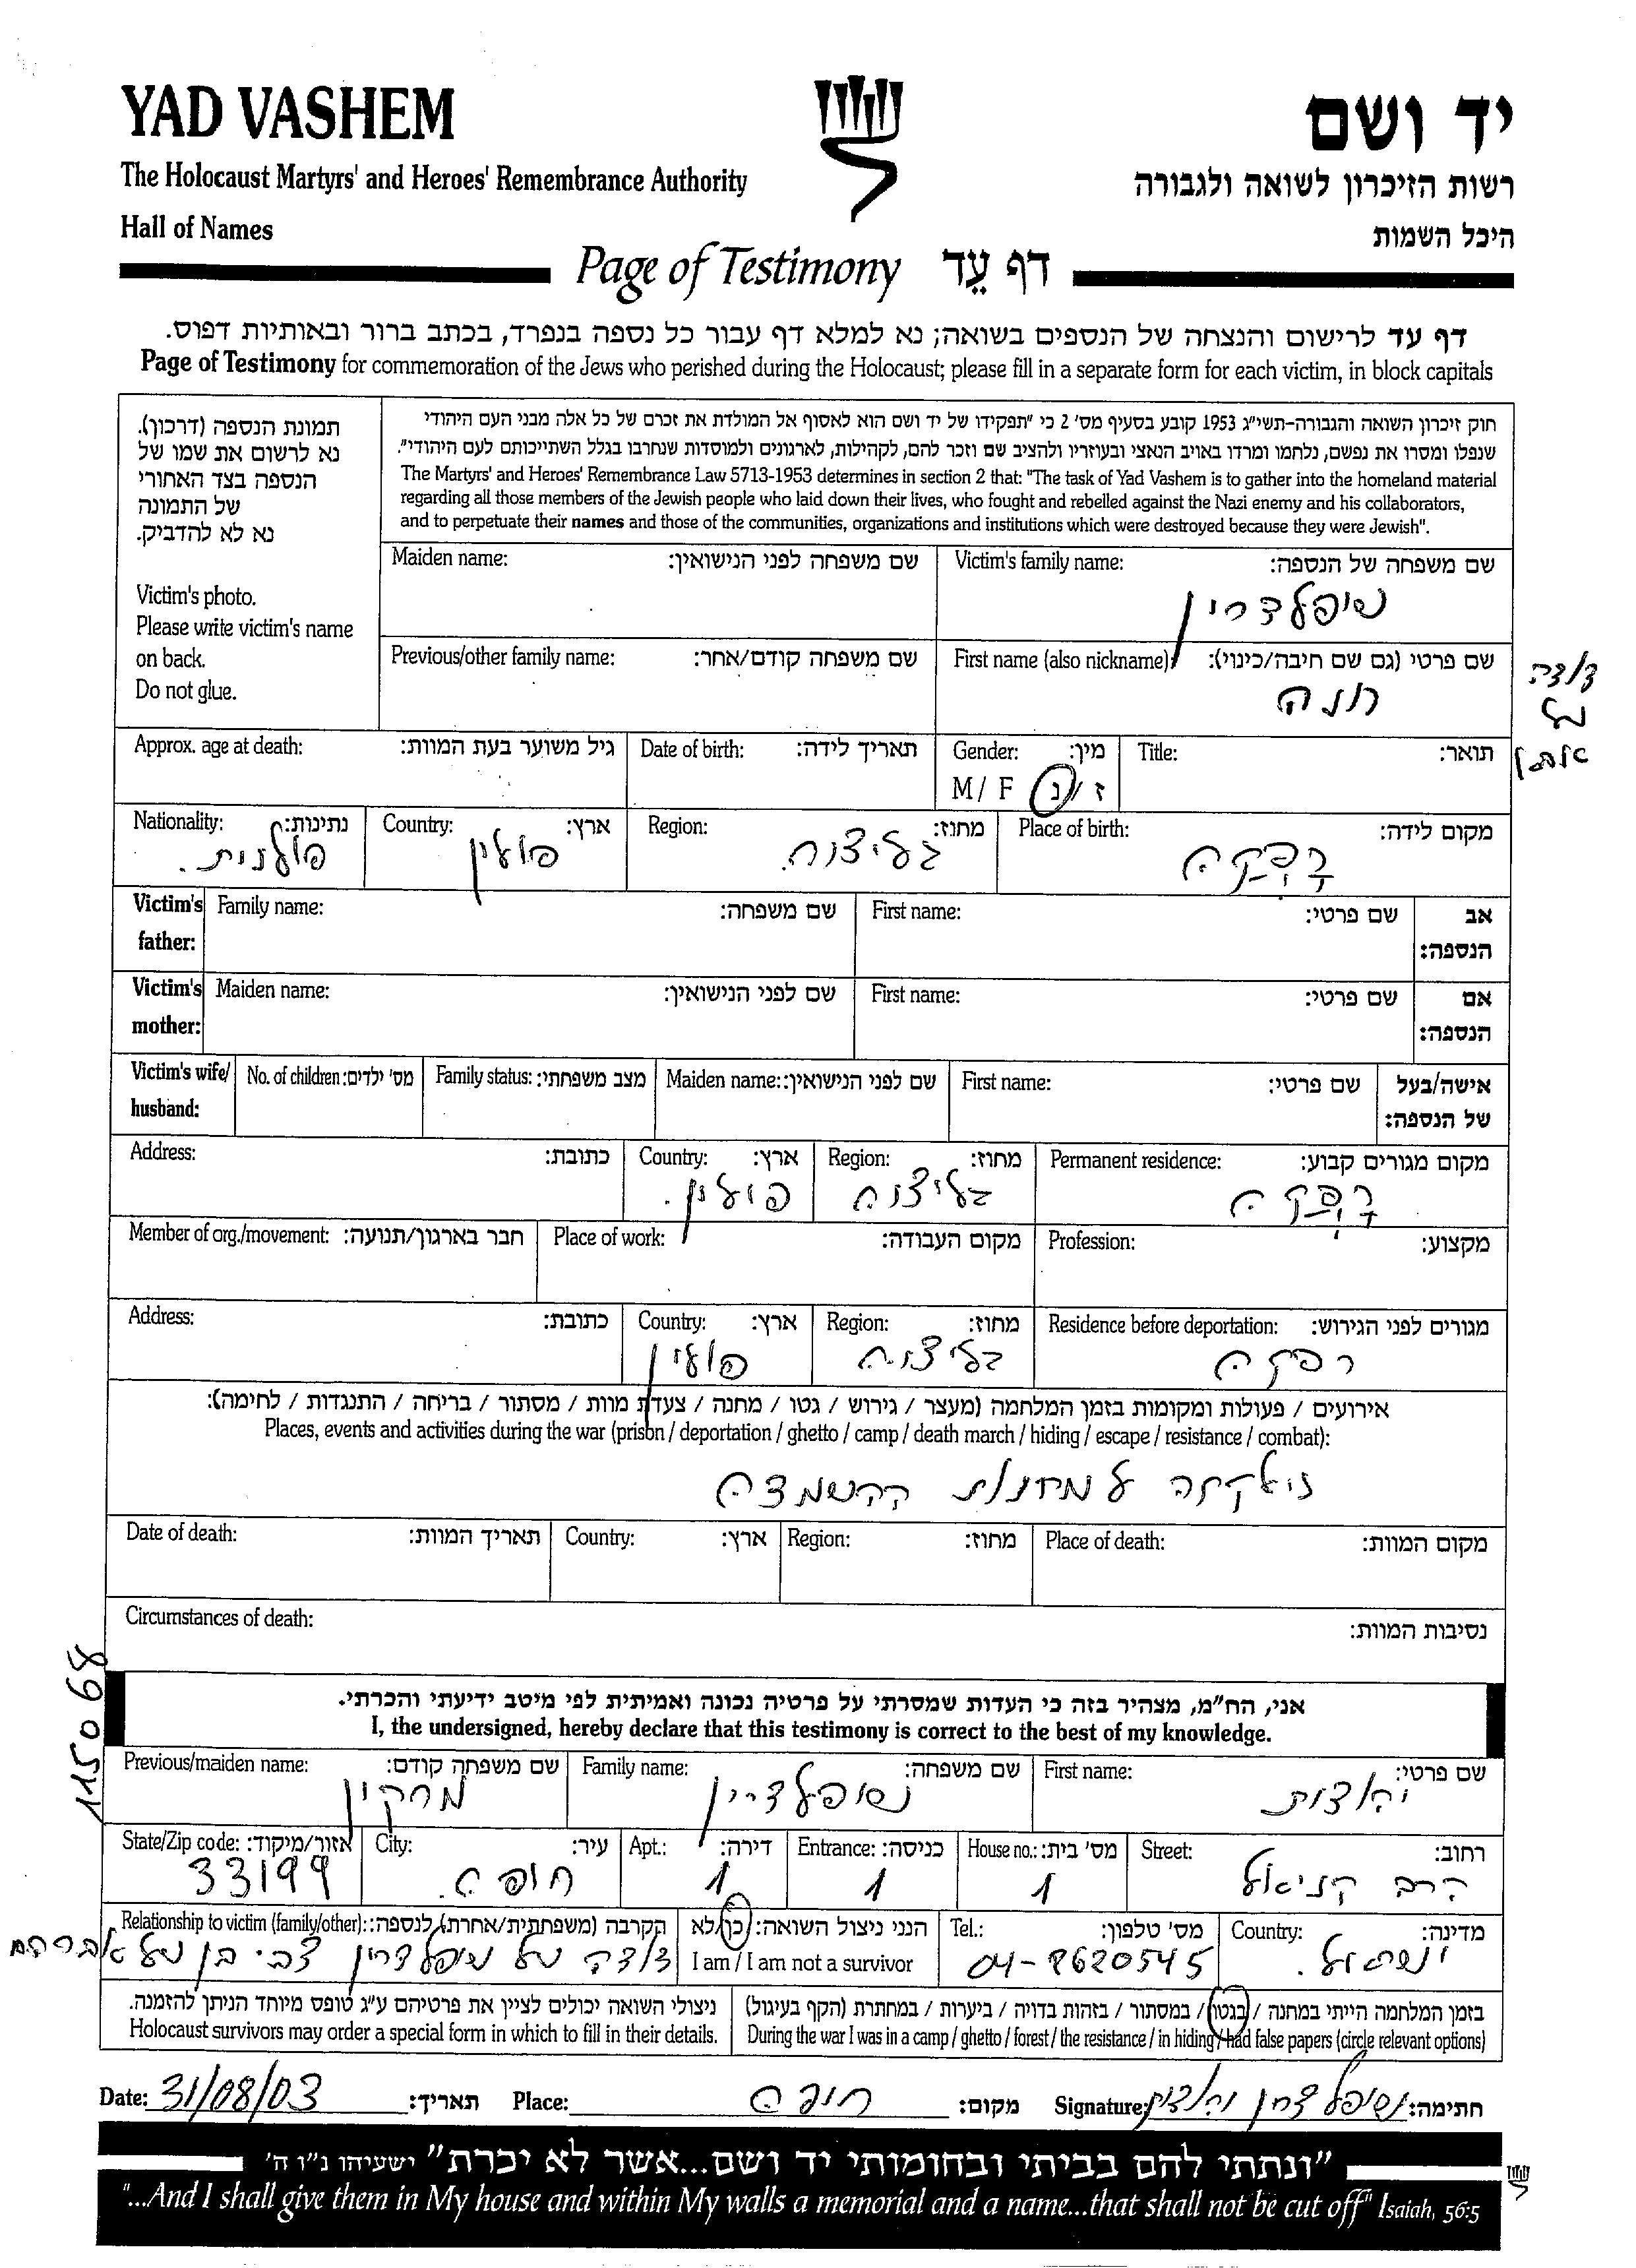 YAD VASHEM
יד ושם
The Holocaust Martyrs' and Heroes' Remembrance Authority
רשות הזיכרון לשואה ולגבורה
Hall of Names
היכל השמות
Page of Testimony דף עֵד
דף עד לרישום והנצחה של הנספים בשואה; נא למלא דף עבור כל נספה בנפרד, בכתב ברור ובאותיות דפוס.
Page of Testimony for commemoration of the Jews who perished during the Holocaust; please fill in a separate form for each victim, in block capitals
תמונת הנספה (דרכון).
נא לרשום את שמו של
הנספה בצד האחורי
של התמונה
נא לא להדביק.
Victim's photo.
Please write victim's name
on back.
Do not glue.
חוק זיכרון השואה והגבורה-תשי"ג 1953 קובע בסעיף מס' 2 כי "תפקידו של יד ושם הוא לאסוף אל המולדת את זכרם של כל אלה מבני העם היהודי
שנפלו ומסרו את נפשם, נלחמו ומרדו באויב הנאצי ובעוזריו ולהציב שם וזכר להם, לקהילות, לארגונים ולמוסדות שנחרבו בגלל השתייכותם לעם היהודי".
The Martyrs' and Heroes' Remembrance Law 5713-1953 determines in section 2 that: "The task of Yad Vashem is to gather into the homeland material
regarding all those members of the Jewish people who laid down their lives, who fought and rebelled against the Nazi enemy and his collaborators,
and to perpetuate their names and those of the communities, organizations and institutions which were destroyed because they were Jewish".
Maiden name: שם משפחה לפני הנישואין:
Victim's family name: שם משפחה של הנספה:
שיפלדרין
Previous/other family name: שם משפחה קודם/אחר:
First name (also nickname): שם פרטי (גם שם חיבה/כינוי):
חנה
דודה
של
Approx. age at death: גיל משוער בעת המוות:
Date of birth: תאריך לידה:
Gender: מין:
M/ F ז / נ
Title: תואר:
Nationality: נתינות:
פולנית.
Country: ארץ:
פולין
Region: מחוז:
גליציה.
Place of birth: מקום לידה:
דבקה
Victim's father: Family name: שם משפחה: First name: שם פרטי: אב הנספה:
Victim's mother: Maiden name: שם לפני הנישואין: First name: שם פרטי: אם הנספה:
Victim's wife/ husband: No. of children: מס' ילדים: Family status: מצב משפחתי: Maiden name: שם לפני הנישואין: First name: שם פרטי: אישה/בעל של הנספה:
Address: כתובת:
Country: ארץ:
פולין.
Region: מחוז:
גליציה
Permanent residence: מקום מגורים קבוע:
דבקה
Member of org./movement: חבר בארגון/תנועה: Place of work: מקום העבודה: Profession: מקצוע:
Address: כתובת:
Country: ארץ:
פולין
Region: מחוז:
גליציה
Residence before deportation: מגורים לפני הגירוש:
דבקה
אירועים / פעולות ומקומות בזמן המלחמה (מעצר / גירוש / גטו / מחנה / צעדת מוות / מסתור / בריחה / התנגדות / לחימה):
Places, events and activities during the war (prison / deportation / ghetto / camp / death march / hiding / escape / resistance / combat):
נלקחה למחנות ההשמדה
Date of death: תאריך המוות: Country: ארץ: Region: מחוז: Place of death: מקום המוות:
Circumstances of death: נסיבות המוות:
115068
אני, הח"מ, מצהיר בזה כי העדות שמסרתי על פרטיה נכונה ואמיתית לפי מיטב ידיעתי והכרתי.
I, the undersigned, hereby declare that this testimony is correct to the best of my knowledge.
Previous/maiden name: שם משפחה קודם:
Family name: שם משפחה:
שיפלדרין
First name: שם פרטי:
יהודית
State/Zip code: אזור/מיקוד:
33199
City: עיר:
חיפה.
Apt.: דירה:
1
Entrance: כניסה:
1
House no.: מס' בית:
1
Street: רחוב:
הרב קניאל
Relationship to victim (family/other): הקרבה (משפחתית/אחרת) לנספה:
דודה של שיפלדרין צבי בן של אברהם
הנני ניצול השואה: כן/לא
I am / I am not a survivor
Tel.: מס' טלפון:
04-8620545
Country: מדינה:
ישראל.
ניצולי השואה יכולים לציין את פרטיהם ע"ג טופס מיוחד הניתן להזמנה.
Holocaust survivors may order a special form in which to fill in their details.
בזמן המלחמה הייתי במחנה / בגטו / במסתור / בזהות בדויה / ביערות / במחתרת (הקף בעיגול)
During the war I was in a camp / ghetto / forest / the resistance / in hiding / had false papers (circle relevant options)
Date: 31/08/03 תאריך: Place: חיפה מקום: Signature: שיפלדרין יהודית חתימה:
"ונתתי להם בביתי ובחומותי יד ושם...אשר לא יכרת" ישעיהו נ"ו ה'
"...And I shall give them in My house and within My walls a memorial and a name...that shall not be cut off" Isaiah, 56:5